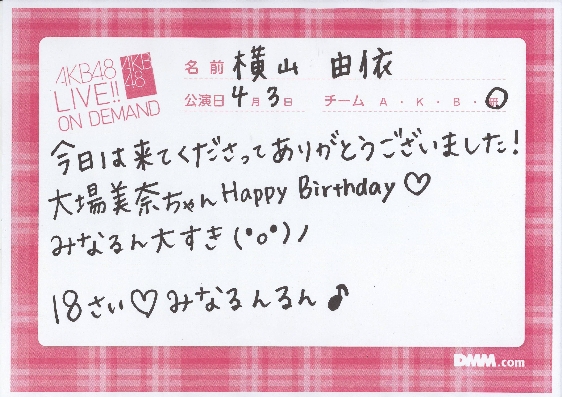 AKB48
LIVE!!
ON DEMAND
AKB
48
名前 横山 由依
公演日 4月3日 チーム A・K・B・研
今日は来てくださってありがとうございました!
大場美奈ちゃんHappy Birthday♡
みなるん大すき(°o°)ノ
18さい♡みなるんるん♪
DMM.com